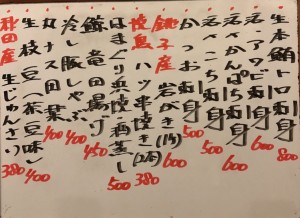 生本鮪トロ刺身 800
活〆アワビ刺身 600
活〆かんぱち刺身 600
かつお刺身 500
銚子産 岩がき(1ケ) 600
焼鳥 ハツ串焼き(2本) 380
はまぐり浜焼・酒蒸し 500
鯨竜田揚げ 450
冷し豚しゃぶ 400
丸ナス田楽 400
生枝豆(茶豆味) 400
秋田産 生じゅんさい 380